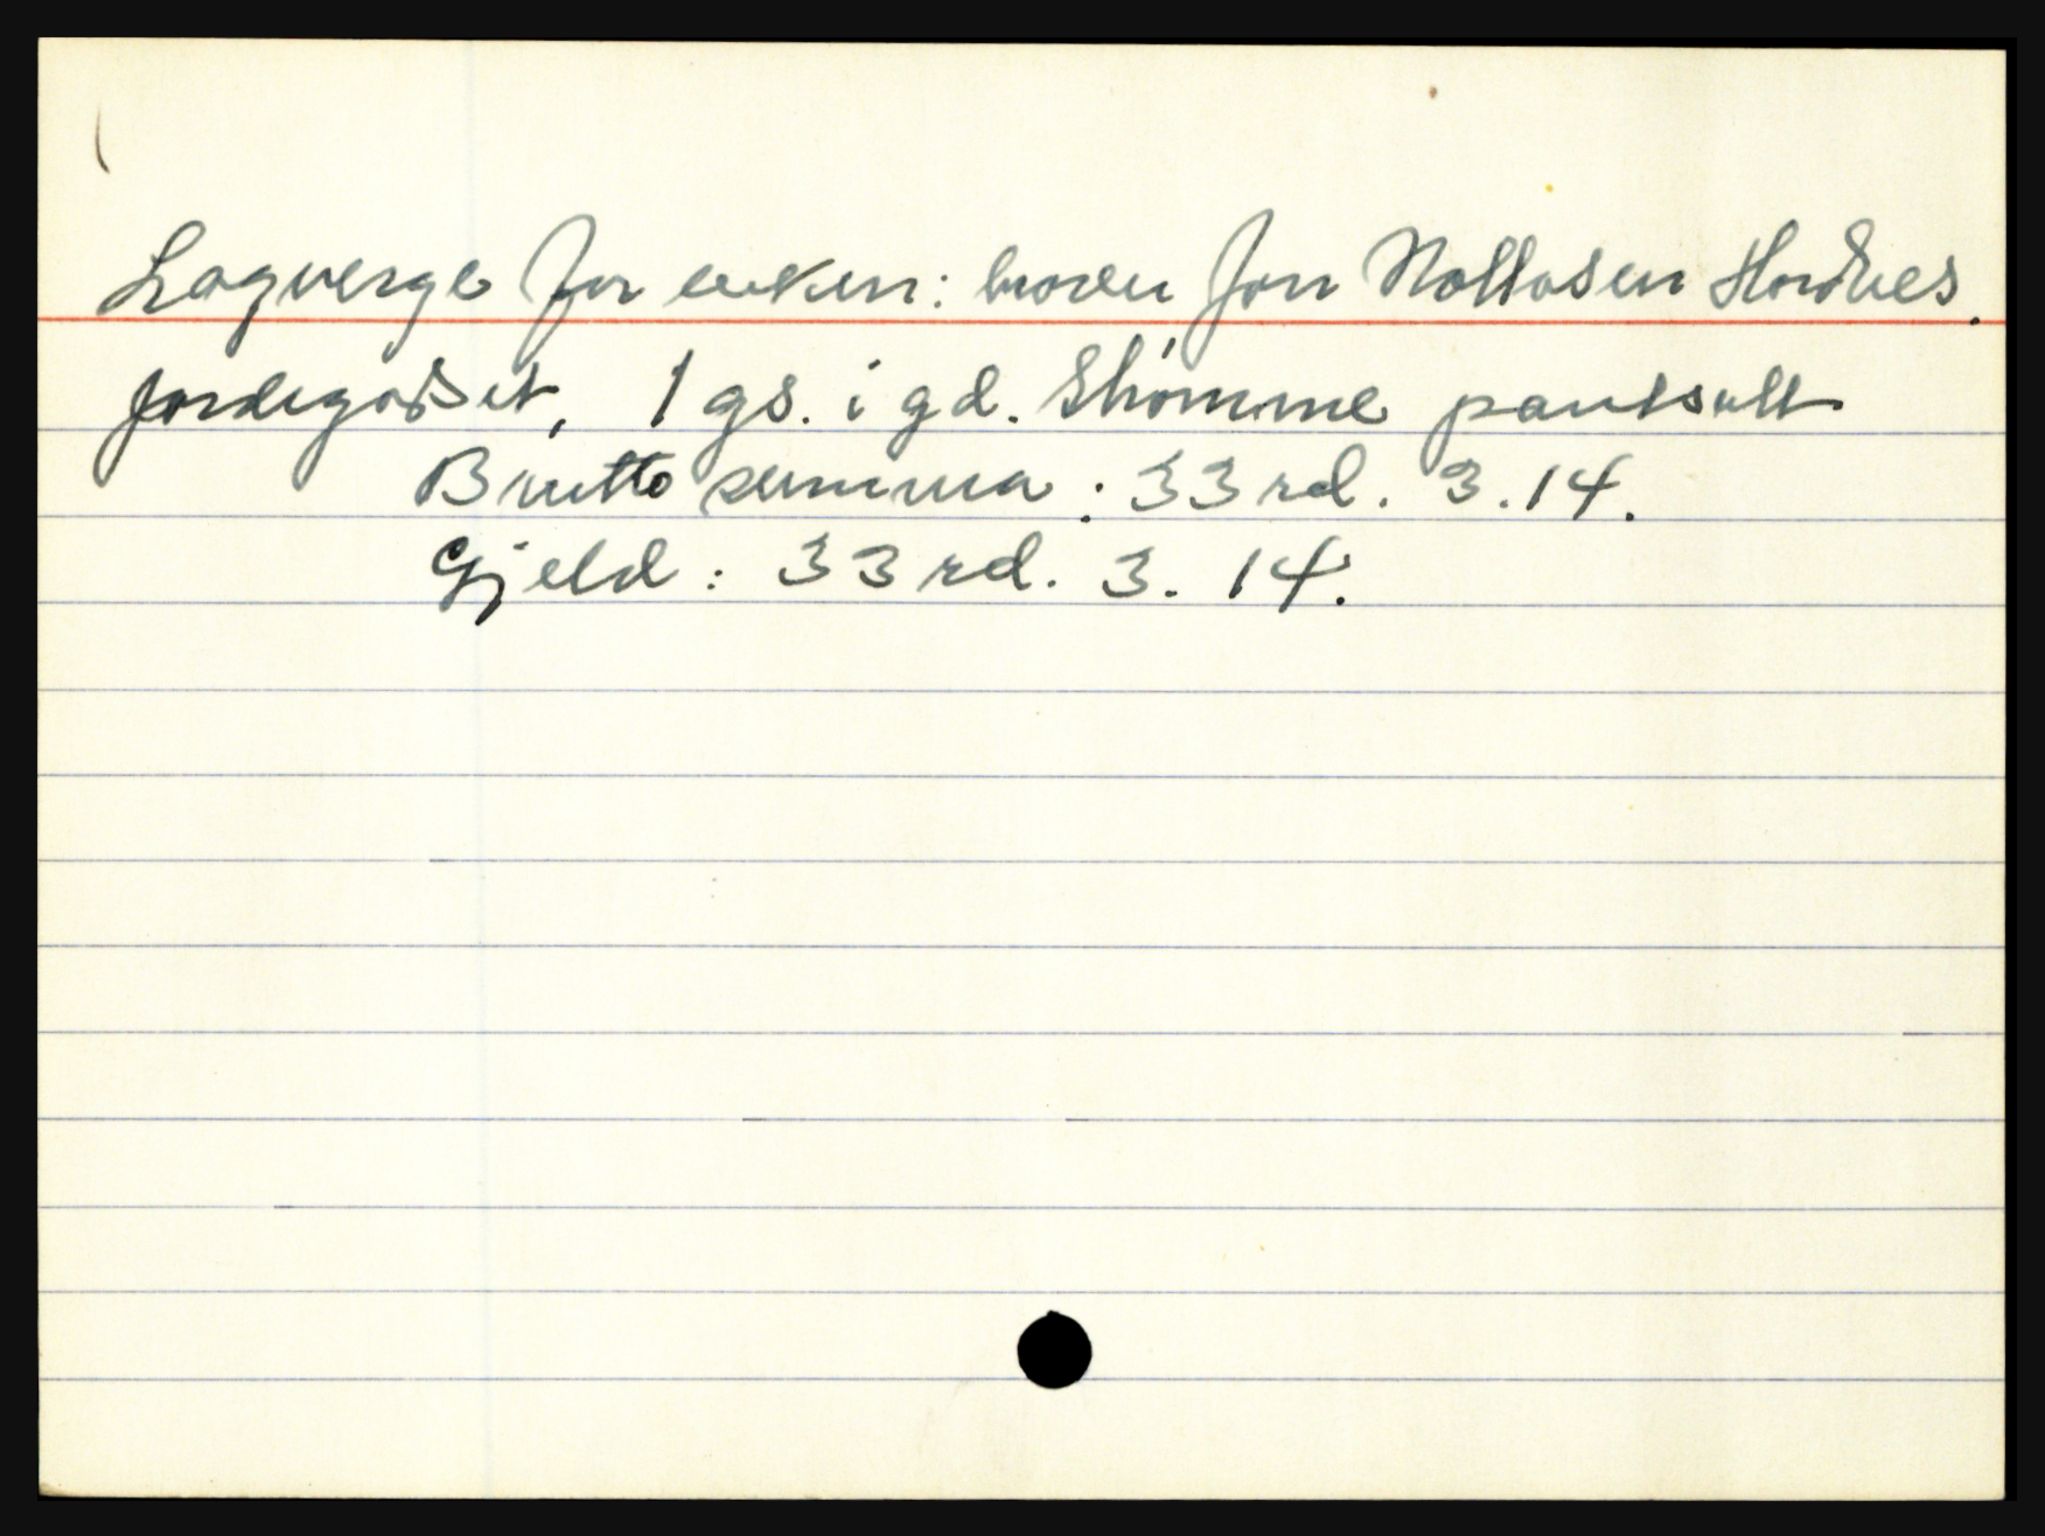 Lagverge for enken: broren Jon Nottosen
jordegodset, 1 gs. i gd. Strømme pantsatt
Brutto summa: 33 rd. 3. 14.
Gjeld: 33 rd. 3. 14.